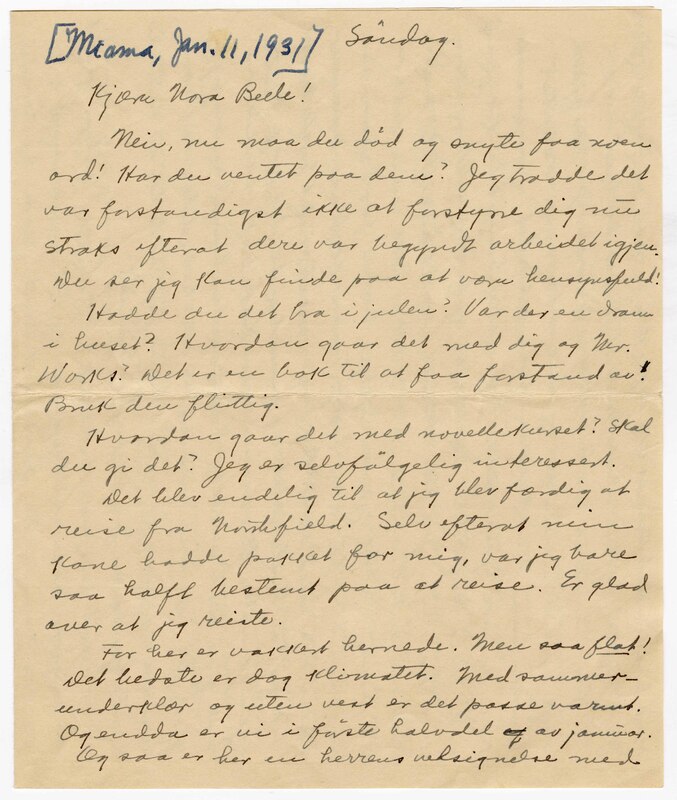 [Miama, Jan. 11, 1931] Söndag.
Kjære Nora Beele!
Nei, nu maa du död og snyte faa noen
ord! Har du ventet paa dem? Jeg trodde det
var forstandigst ikke at forstyrre dig nu
straks efterat dere var begyndt arbeidet igjen.
Du ser jeg kan finde paa at være hensynsfuld!
Hadde du det bra i julen? Var der en dram
i huset? Hvordan gaar det med dig og Mr.
Works? Det er en bok til at faa forstand av!
Bruk den flittig.
Hvordan gaar det med novellekurset? Skal
du gi det? Jeg er selvfölgelig interessert.
Det blev endelig til at jeg blev færdig at
reise fra Northfield. Selv efterat min
kone hadde pakket for mig, var jeg bare
saa halft bestemt paa at reise. Er glad
over at jeg reiste.
For her er vakkert hernede. Men saa flat!
Det bedste er dog klimatet. Med sommer-
underklær og uten vest er det passe varmt.
Og endda er vi i förste halvdel av januar.
Og saa er her en herrens velsignelse med